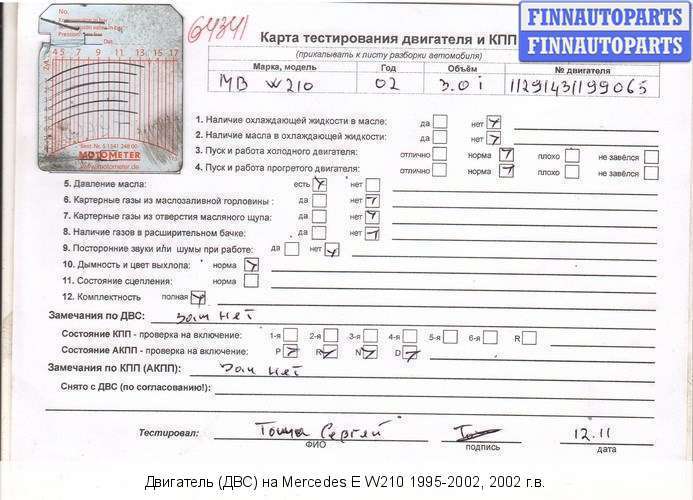 No.
4 5 7 9 11 13 15 17
MOTOMETER
64341
FINNAUTOPARTS
FINNAUTOPARTS
Карта тестирования двигателя и КПП
(прикалывать к листу разборки автомобиля)
Марка, модель Год Объём № двигателя
MB W210 02 3.0i 11291431199065
1. Наличие охлаждающей жидкости в масле: да нет
2. Наличие масла в охлаждающей жидкости: да нет
3. Пуск и работа холодного двигателя: отлично норма плохо не завёлся
4. Пуск и работа прогретого двигателя: отлично норма плохо не завёлся
5. Давление масла: есть нет
6. Картерные газы из маслозаливной горловины : да нет
7. Картерные газы из отверстия масляного щупа: да нет
8. Наличие газов в расширительном бачке: да нет
9. Посторонние звуки или шумы при работе: да нет
10. Дымность и цвет выхлопа: норма
11. Состояние сцепления: норма
12. Комплектность полная
Замечания по ДВС: Зам нет
Состояние КПП - проверка на включение: 1-я 2-я 3-я 4-я 5-я 6-я R
Состояние АКПП - проверка на включение: P R N D
Замечания по КПП (АКПП): Зам нет
Снято с ДВС (по согласованию!):
Тестировал: Сергей 12.11
ФИО подпись дата
Двигатель (ДВС) на Mercedes E W210 1995-2002, 2002 г.в.